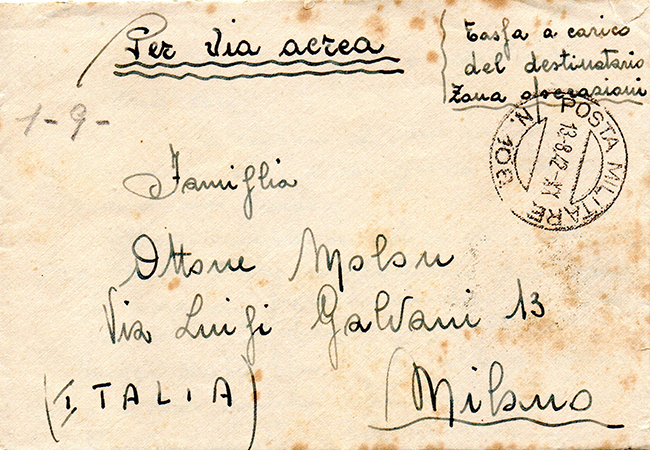 Per via aerea
Tassa a carico
del destinatario
Zona operazioni
POSTA MILITARE N. 108
13-8.42-XX
1-9-
Famiglia
Ottone Molon
Via Luigi Galvani 13
Milano
(ITALIA)